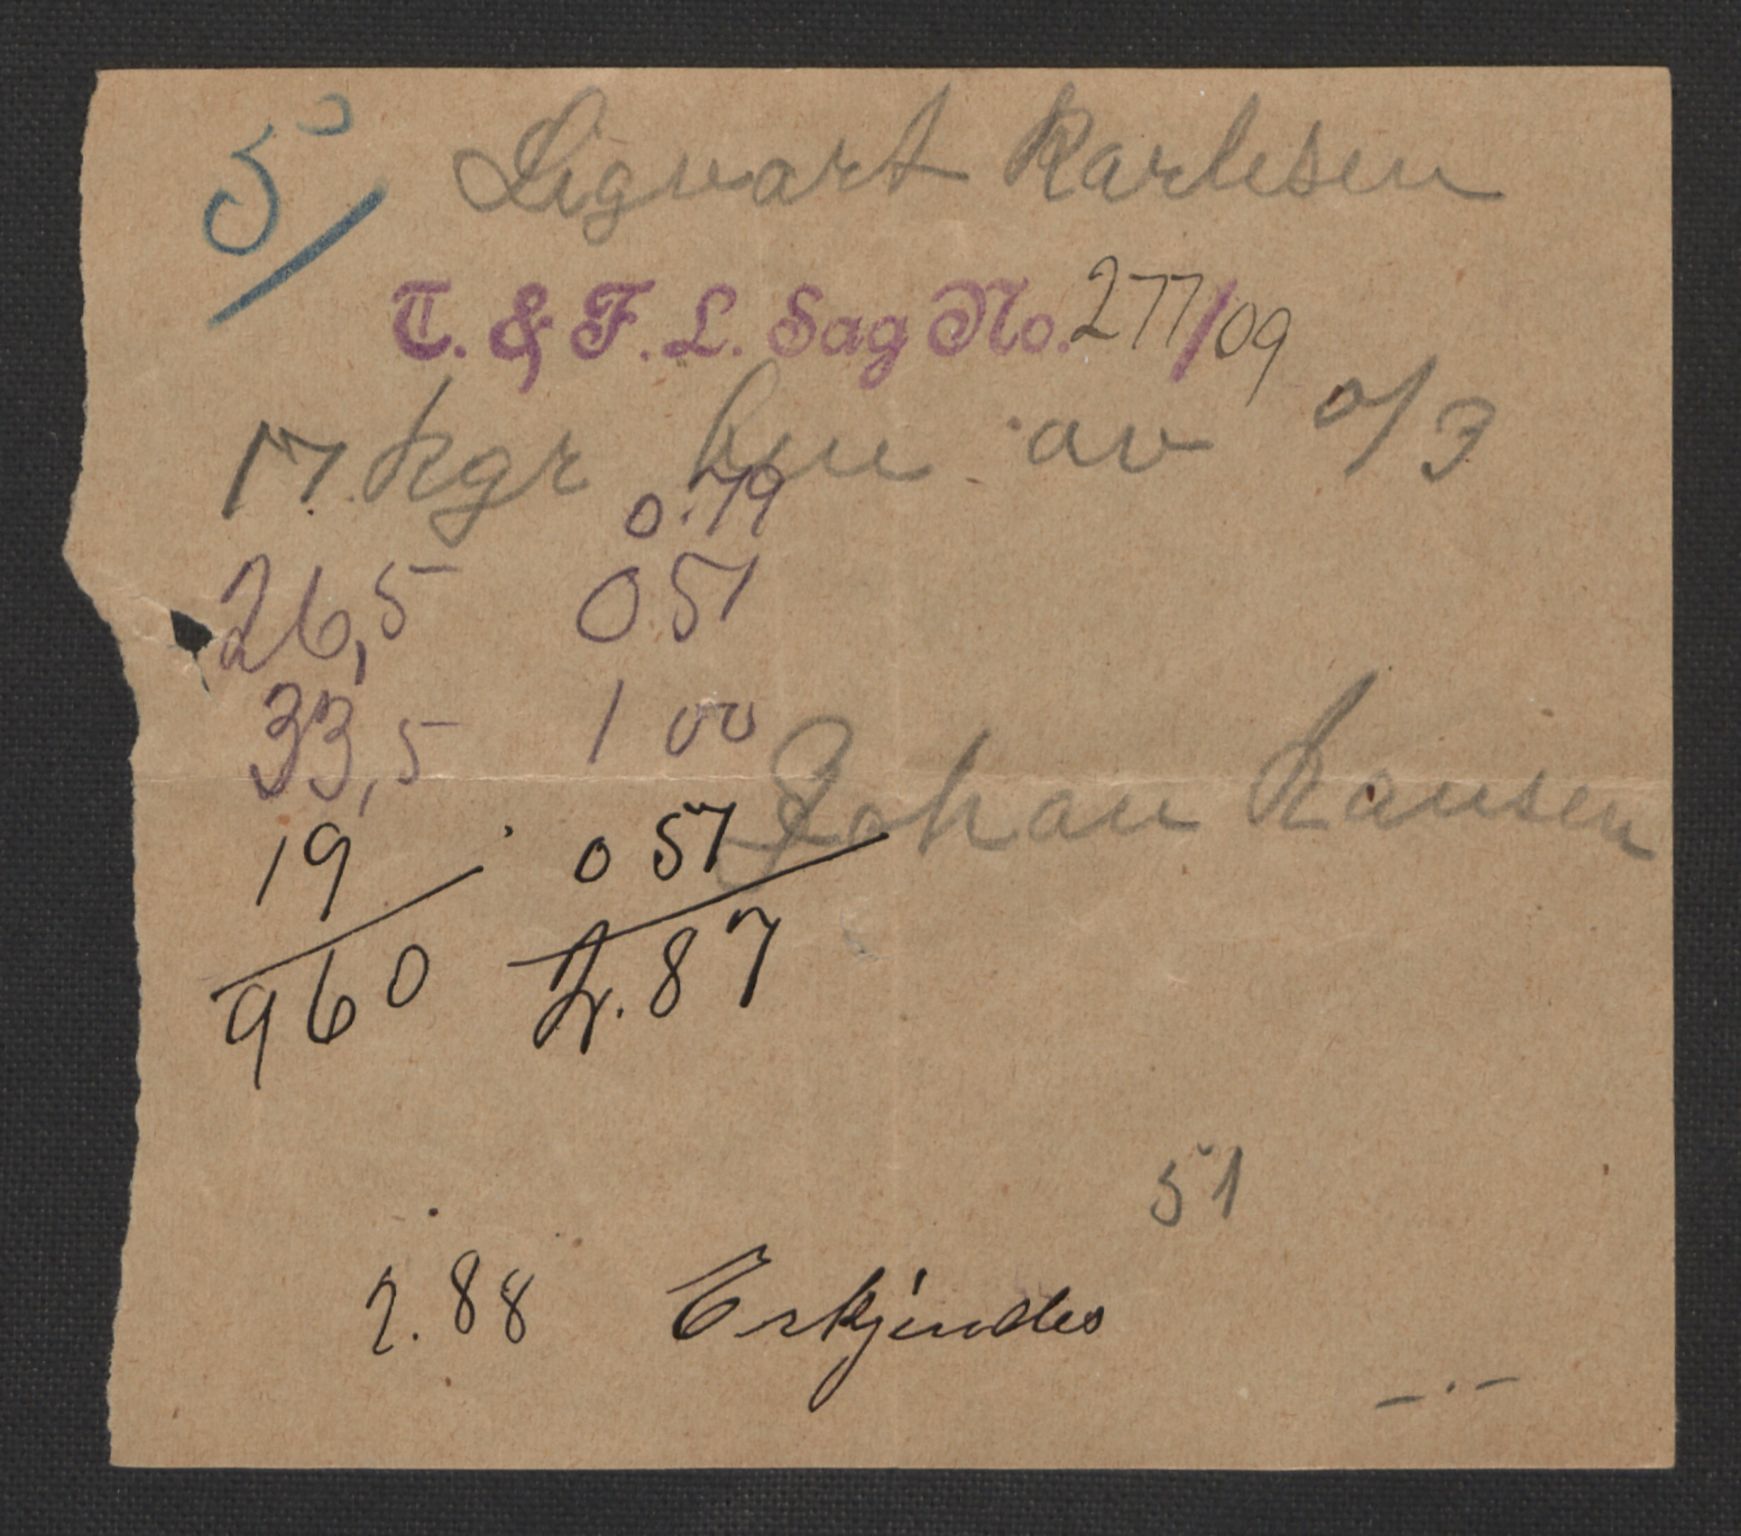 5/ Sigvart Karlesen
T. & F. L. Sag No. 277/09
17. kgr hue av 0/3
0.79
26,5 0.51
33,5 1 00
Johan Hansen
19 0 57
960 2.87
51
2.88 Erkjendes